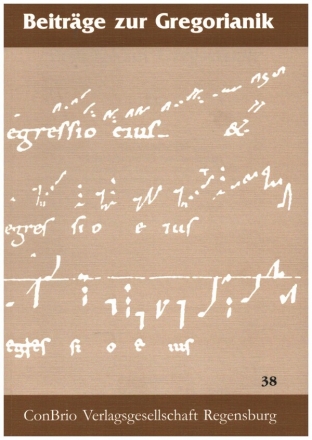 Beiträge zur Gregorianik
egressio eius &
egres sio e ius
egres si o e ius
38
ConBrio Verlagsgesellschaft Regensburg